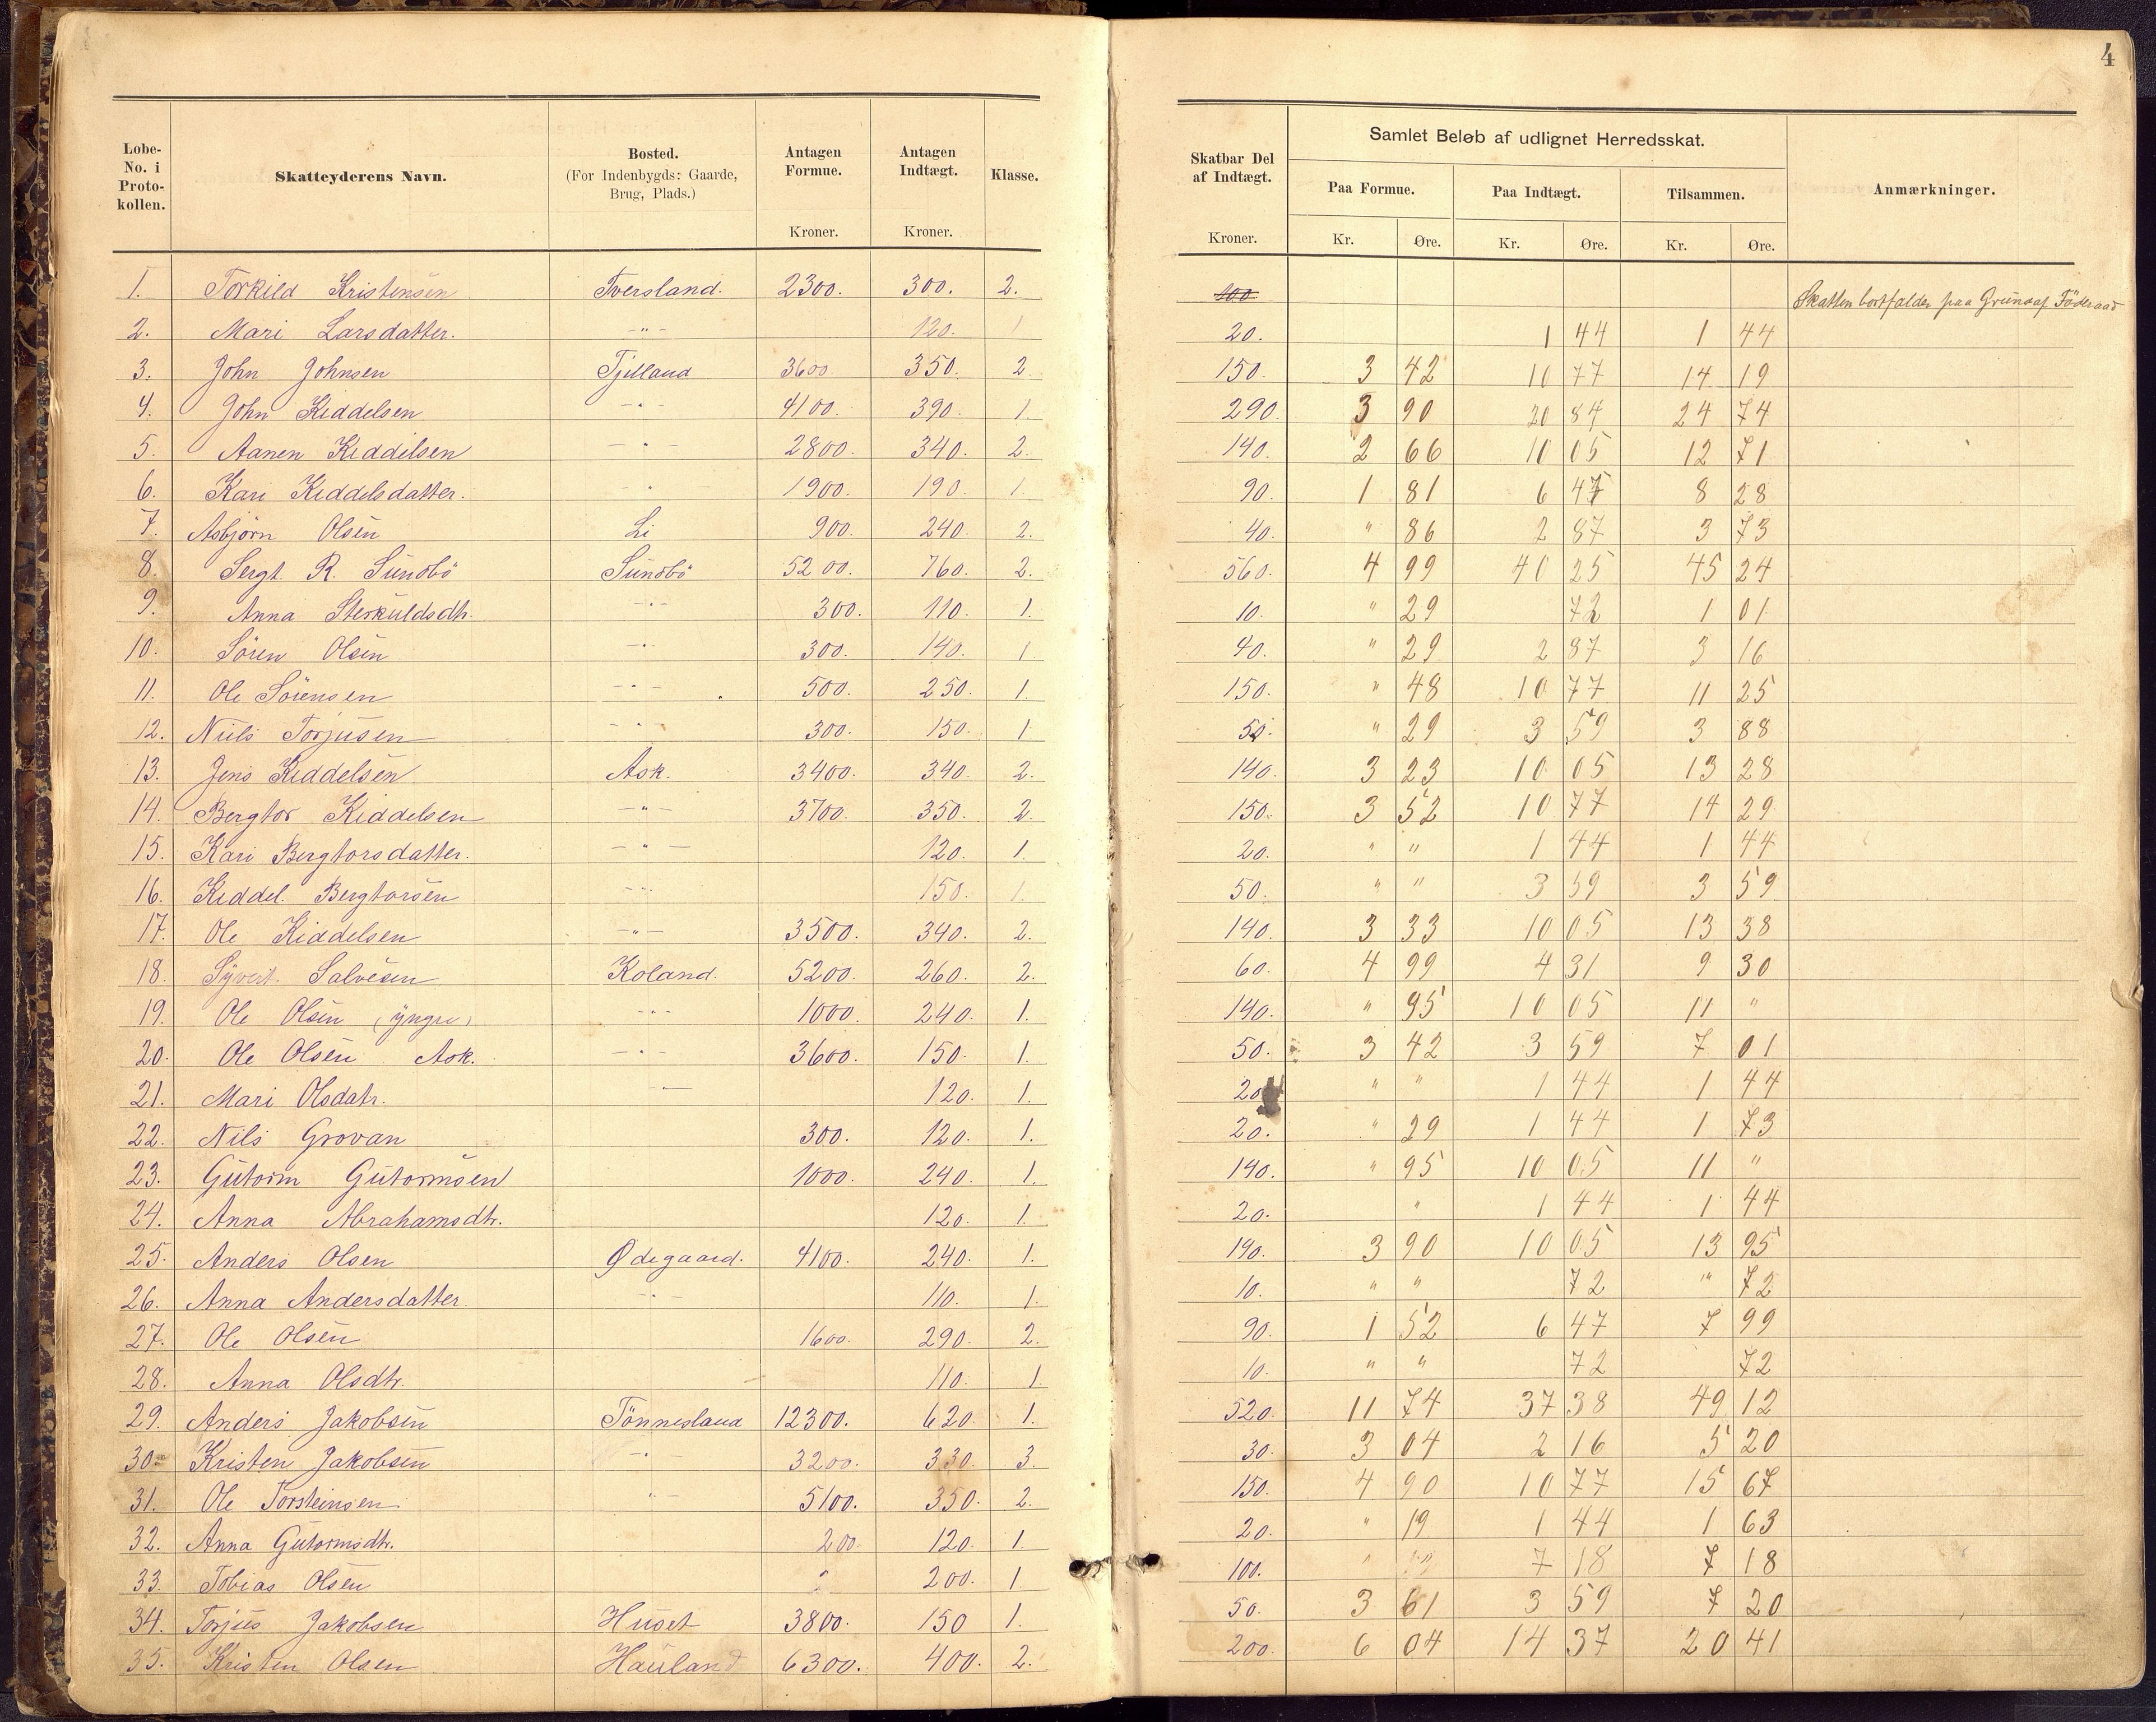 4
Lobe-No. i Proto-kollen. Skatteyderens Navn. Bosted. (For Indenbygds: Gaarde, Brug, Plads.) Antagen Formue. Kroner. Antagen Indtægt. Kroner. Klasse. Skatbar Del af Indtægt. Kroner. Samlet Beløb af udlignet Herredsskat. Paa Formue. Kr. Øre. Paa Indtægt. Kr. Øre. Tilsammen. Kr. Øre. Anmærkninger.
1. Torkild Kristensen Tversland. 2300. 300. 2. 100 Skatten bortfalder paa Grund af Föderaad
2. Mari Larsdatter. -"- 120. 1 20. 1 44 1 44
3. John Johnsen Tjelland 3600 350. 2. 150. 3 42 10 77 14 19
4. John Keddelsen -"- 4100. 390. 1. 290. 3 90 20 84 24 74
5. Aanen Keddelsen -"- 2800. 340. 2. 140. 2 66 10 05 12 71
6. Kari Keddelsdatter. " 1900. 190. 1. 90. 1 81 6 47 8 28
7. Asbjörn Olsen Li 900. 240. 2. 40. " 86 2 87 3 73
8. Sergt. R. Sundbö Sundbö 5200. 760. 2. 560. 4 99 40 25 45 24
9. Anna Sterkuldsdtr. -"- 300. 110. 1. 10. " 29 72 1 01
10. Sören Olsen -"- 300. 140. 1. 40. " 29 2 87 3 16
11. Ole Sörensen -"- 500. 250. 1. 150. " 48 10 77 11 25
12. Niils Torjusen -"- 300. 150. 1 50. " 29 3 59 3 88
13. Jens Keddelsen Ask. 3400. 340. 2. 140. 3 23 10 05 13 28
14. Bergtor Keddelsen -"- 3700. 350. 2. 150. 3 52 10 77 14 29
15. Kari Bergtorsdatter. -"- 120. 1. 20. " " 1 44 1 44
16. Keddel Bergtorsen -"- 150. 1. 50. " " 3 59 3 59
17. Ole Keddelsen -"- 3500. 340. 2. 140. 3 33 10 05 13 38
18. Syvert Salvesen Koland. 5200. 260. 2. 60. 4 99 4 31 9 30
19. Ole Olsen (yngre) -"- 1000. 240. 1. 140. " 95 10 05 11 "
20. Ole Olsen Ask. -"- 3600. 150. 1. 50. 3 42 3 59 7 01
21. Mari Olsdatr. — 120. 1. 20 " " 1 44 1 44
22. Nils Grovan 300. 120. 1. 20. " 29 1 44 1 73
23. Gutorm Gutormsen 1000. 240. 1. 140. " 95 10 05 11 "
24. Anna Abrahamsdtr. 120. 1. 20. " 1 44 1 44
25. Anders Olsen Ødegaard. 4100. 240. 1. 140. 3 90 10 05 13 95
26. Anna Andersdatter. -"- 110. 1. 10. " " 72 " 72
27. Ole Olsen 1600. 290. 2. 90. 1 52 6 47 7 99
28. Anna Olsdtr. 110. 1 10. " " 72 72
29. Anders Jakobsen Tönnesland 12300. 620. 1. 520. 11 74 37 38 49 12
30. Kristen Jakobsen -"- 3200. 330. 3. 30. 3 04 2 16 5 20
31. Ole Torsteinsen "- 5100. 350. 2. 150. 4 90 10 77 15 67
32. Anna Gutormsdtr. 200. 120. 1. 20. " 19 1 44 1 63
33. Tobias Olsen 200. 1. 100. 7 18 7 18
34. Torjus Jakobsen Huset 3800. 150 1. 50. 3 61 3 59 7 20
35. Kristen Olsen Hauland 6300. 400. 2. 200. 6 04 14 37 20 41